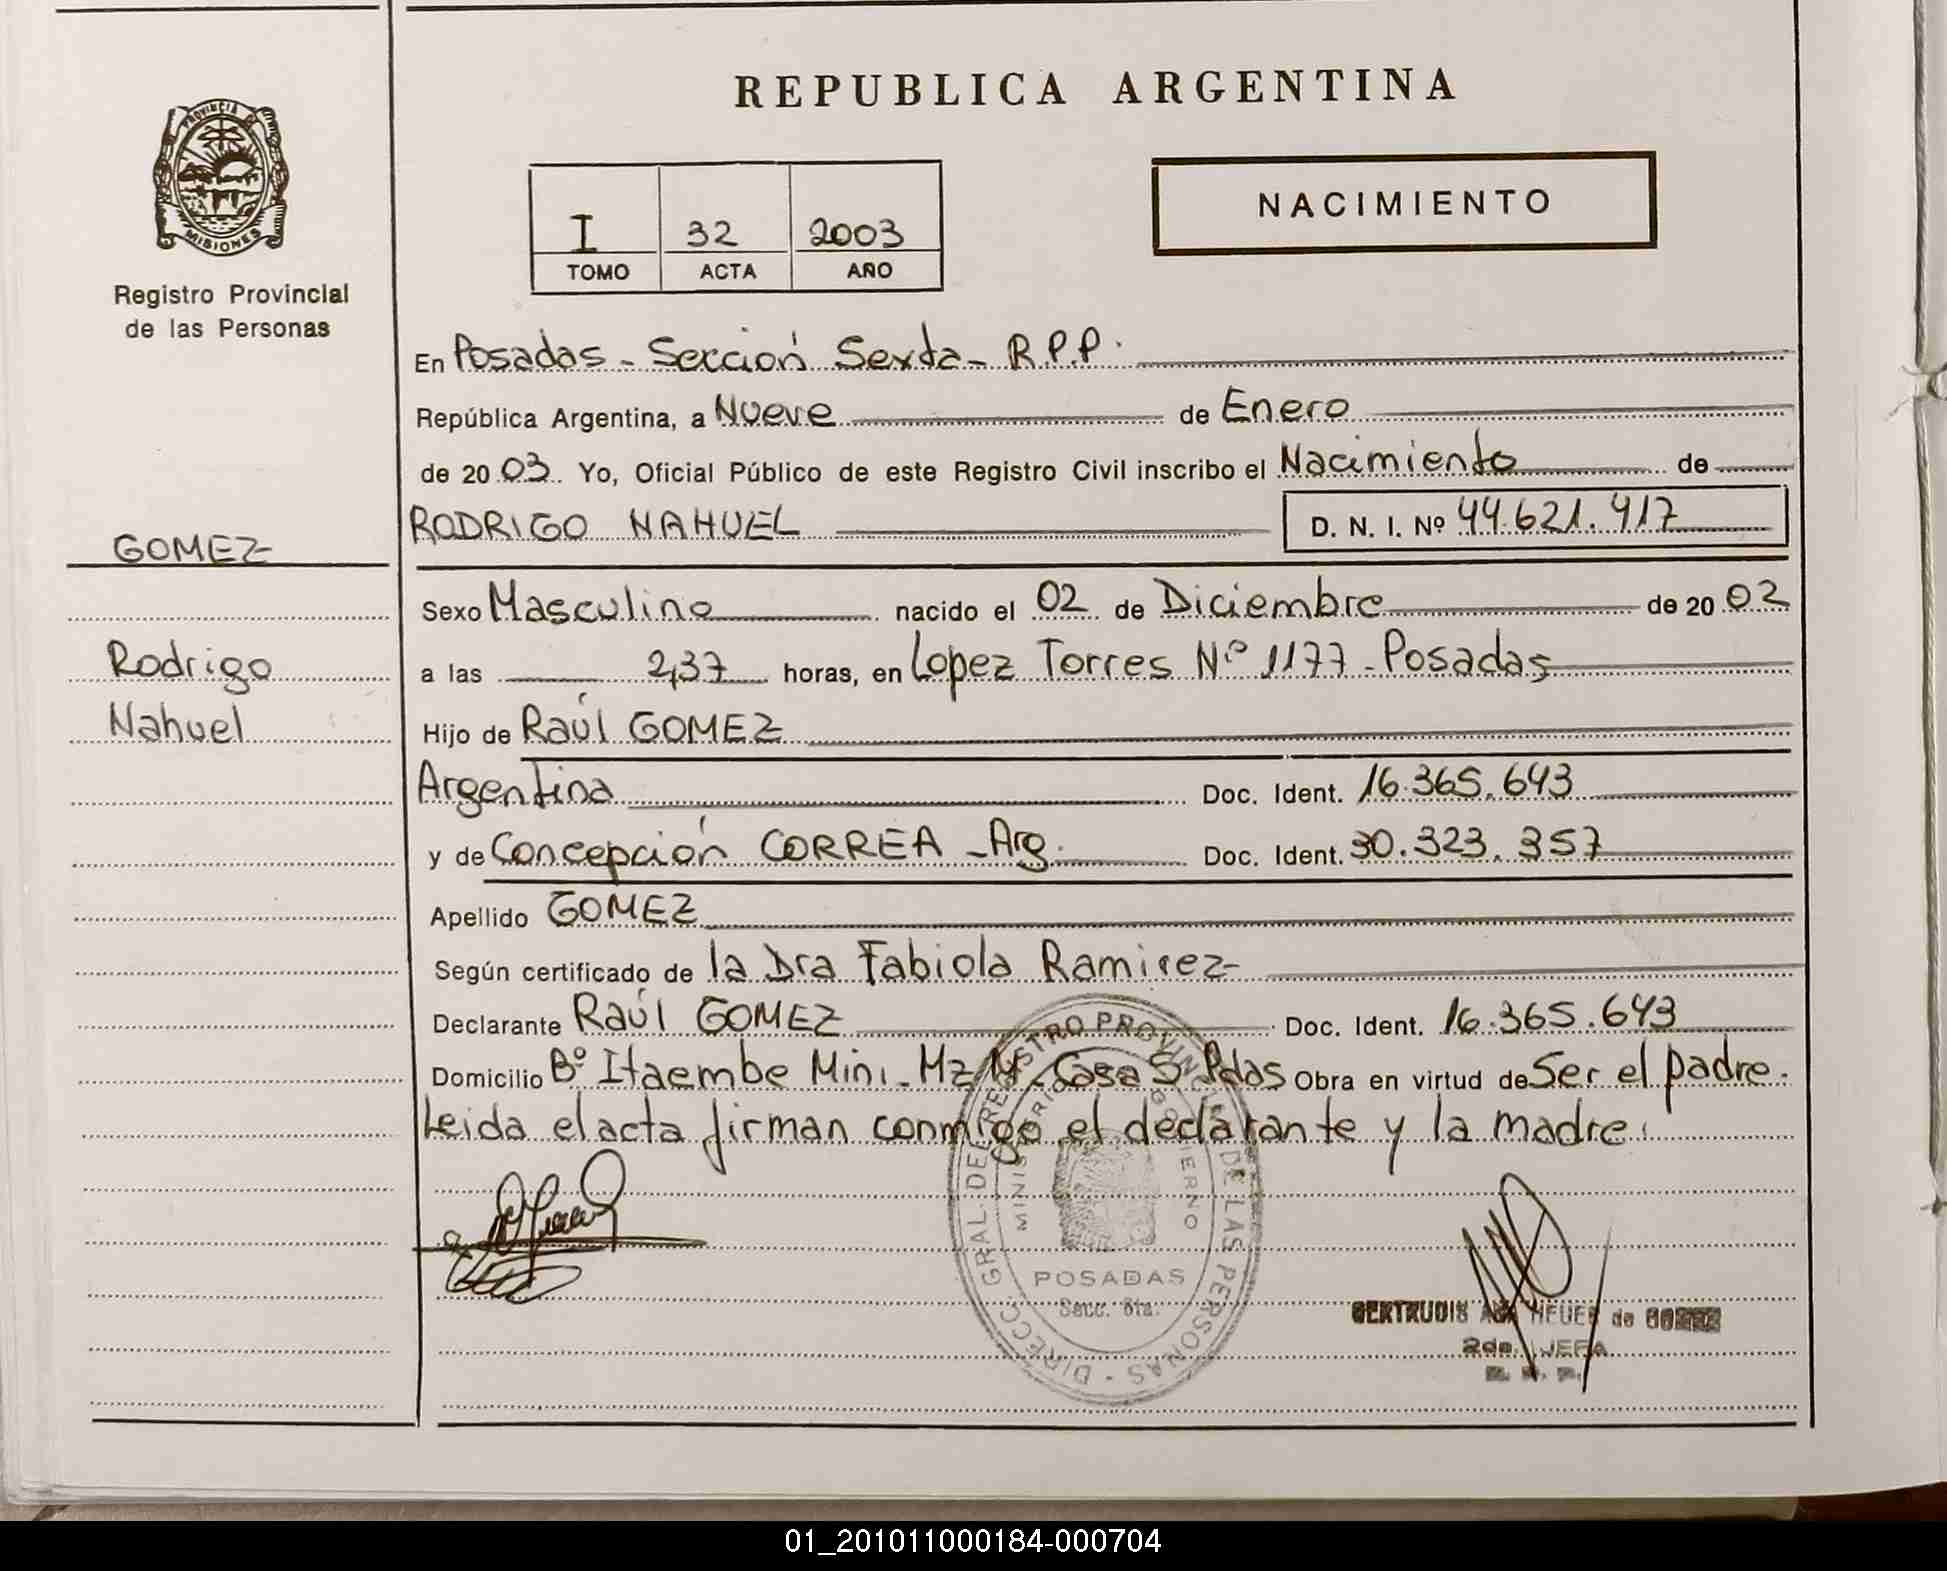 REPUBLICA ARGENTINA
PROVINCIA DE
MISIONES
Registro Provincial
de las Personas
NACIMIENTO
I 32 2003
TOMO ACTA AÑO
En Posadas - Sección Sexta - R.P.P.
República Argentina, a Nueve de Enero
de 2003. Yo, Oficial Público de este Registro Civil inscribo el Nacimiento de
RODRIGO NAHUEL D. N. I. Nº 44.621.417
GOMEZ
Rodrigo
Nahuel
Sexo Masculino nacido el 02 de Diciembre de 2002
a las 2,37 horas, en Lopez Torres Nº 1177 - Posadas
Hijo de Raúl GOMEZ
Argentina Doc. Ident. 16.365.643
y de Concepción CORREA - Arg. Doc. Ident. 30.323.357
Apellido GOMEZ
Según certificado de la Dra Fabiola Ramirez
Declarante Raúl GOMEZ Doc. Ident. 16.365.643
Domicilio Bº Itaembe Mini - Mz Casa 5 Pdas Obra en virtud de Ser el padre.
Leida el acta firman conmigo el declarante y la madre.
DIRECC. GRAL. DEL REGISTRO PROVINCIAL DE LAS PERSONAS
MINISTERIO GOBIERNO
POSADAS
Secc. 6ta.
GERTRUDIS de
2da. JEFA
01_201011000184-000704